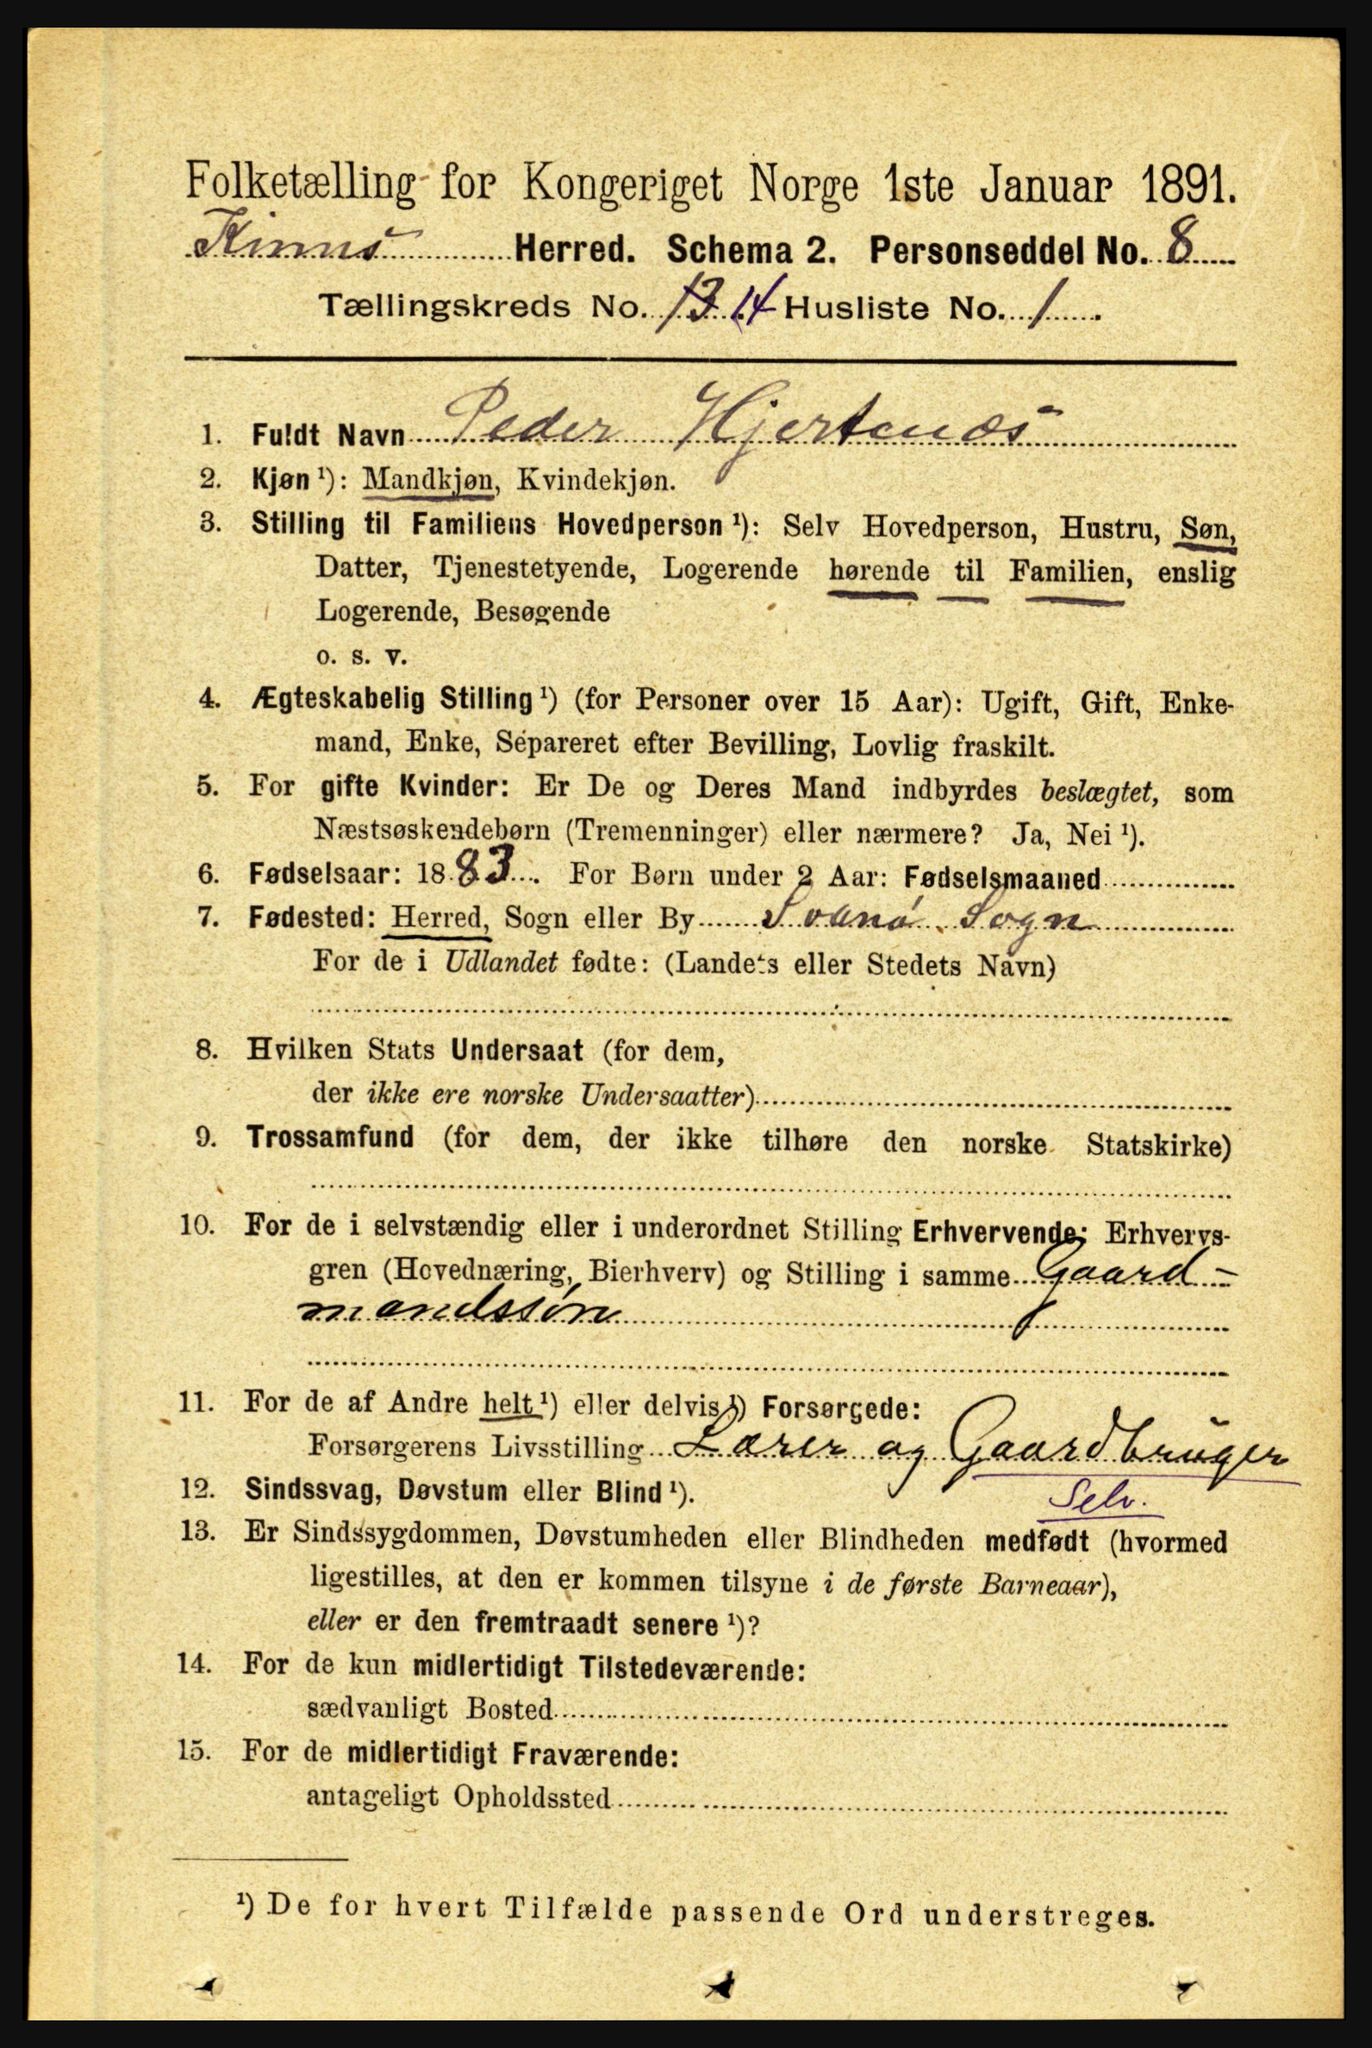 Folketælling for Kongeriget Norge 1ste Januar 1891.
Kinns Herred. Schema 2. Personseddel No. 8
Tællingskreds No. 13 14 Husliste No. 1
1. Fuldt Navn Peder Hjertenæs
2. Kjøn ¹): Mandkjøn, Kvindekjøn.
3. Stilling til Familiens Hovedperson ¹): Selv Hovedperson, Hustru, Søn,
Datter, Tjenestetyende, Logerende hørende til Familien, enslig
Logerende, Besøgende
o. s. v.
4. Ægteskabelig Stilling ¹) (for Personer over 15 Aar): Ugift, Gift, Enke-
mand, Enke, Separeret efter Bevilling, Lovlig fraskilt.
5. For gifte Kvinder: Er De og Deres Mand indbyrdes beslægtet, som
Næstsøskendebørn (Tremenninger) eller nærmere? Ja, Nei ¹).
6. Fødselsaar: 1883. For Børn under 2 Aar: Fødselsmaaned
7. Fødested: Herred, Sogn eller By Svanø Sogn
For de i Udlandet fødte: (Landets eller Stedets Navn)
8. Hvilken Stats Undersaat (for dem,
der ikke ere norske Undersaatter)
9. Trossamfund (for dem, der ikke tilhøre den norske Statskirke)
10. For de i selvstændig eller i underordnet Stilling Erhvervende: Erhvervs-
gren (Hovednæring, Bierhverv) og Stilling i samme Gaard-
mandssøn
11. For de af Andre helt ¹) eller delvis ¹) Forsørgede:
Forsørgerens Livsstilling Lærer og Gaardbruger
12. Sindssvag, Døvstum eller Blind ¹). Selv.
13. Er Sindssygdommen, Døvstumheden eller Blindheden medfødt (hvormed
ligestilles, at den er kommen tilsyne i de første Barneaar),
eller er den fremtraadt senere ¹)?
14. For de kun midlertidigt Tilstedeværende:
sædvanligt Bosted
15. For de midlertidigt Fraværende:
antageligt Opholdssted
¹) De for hvert Tilfælde passende Ord understreges.